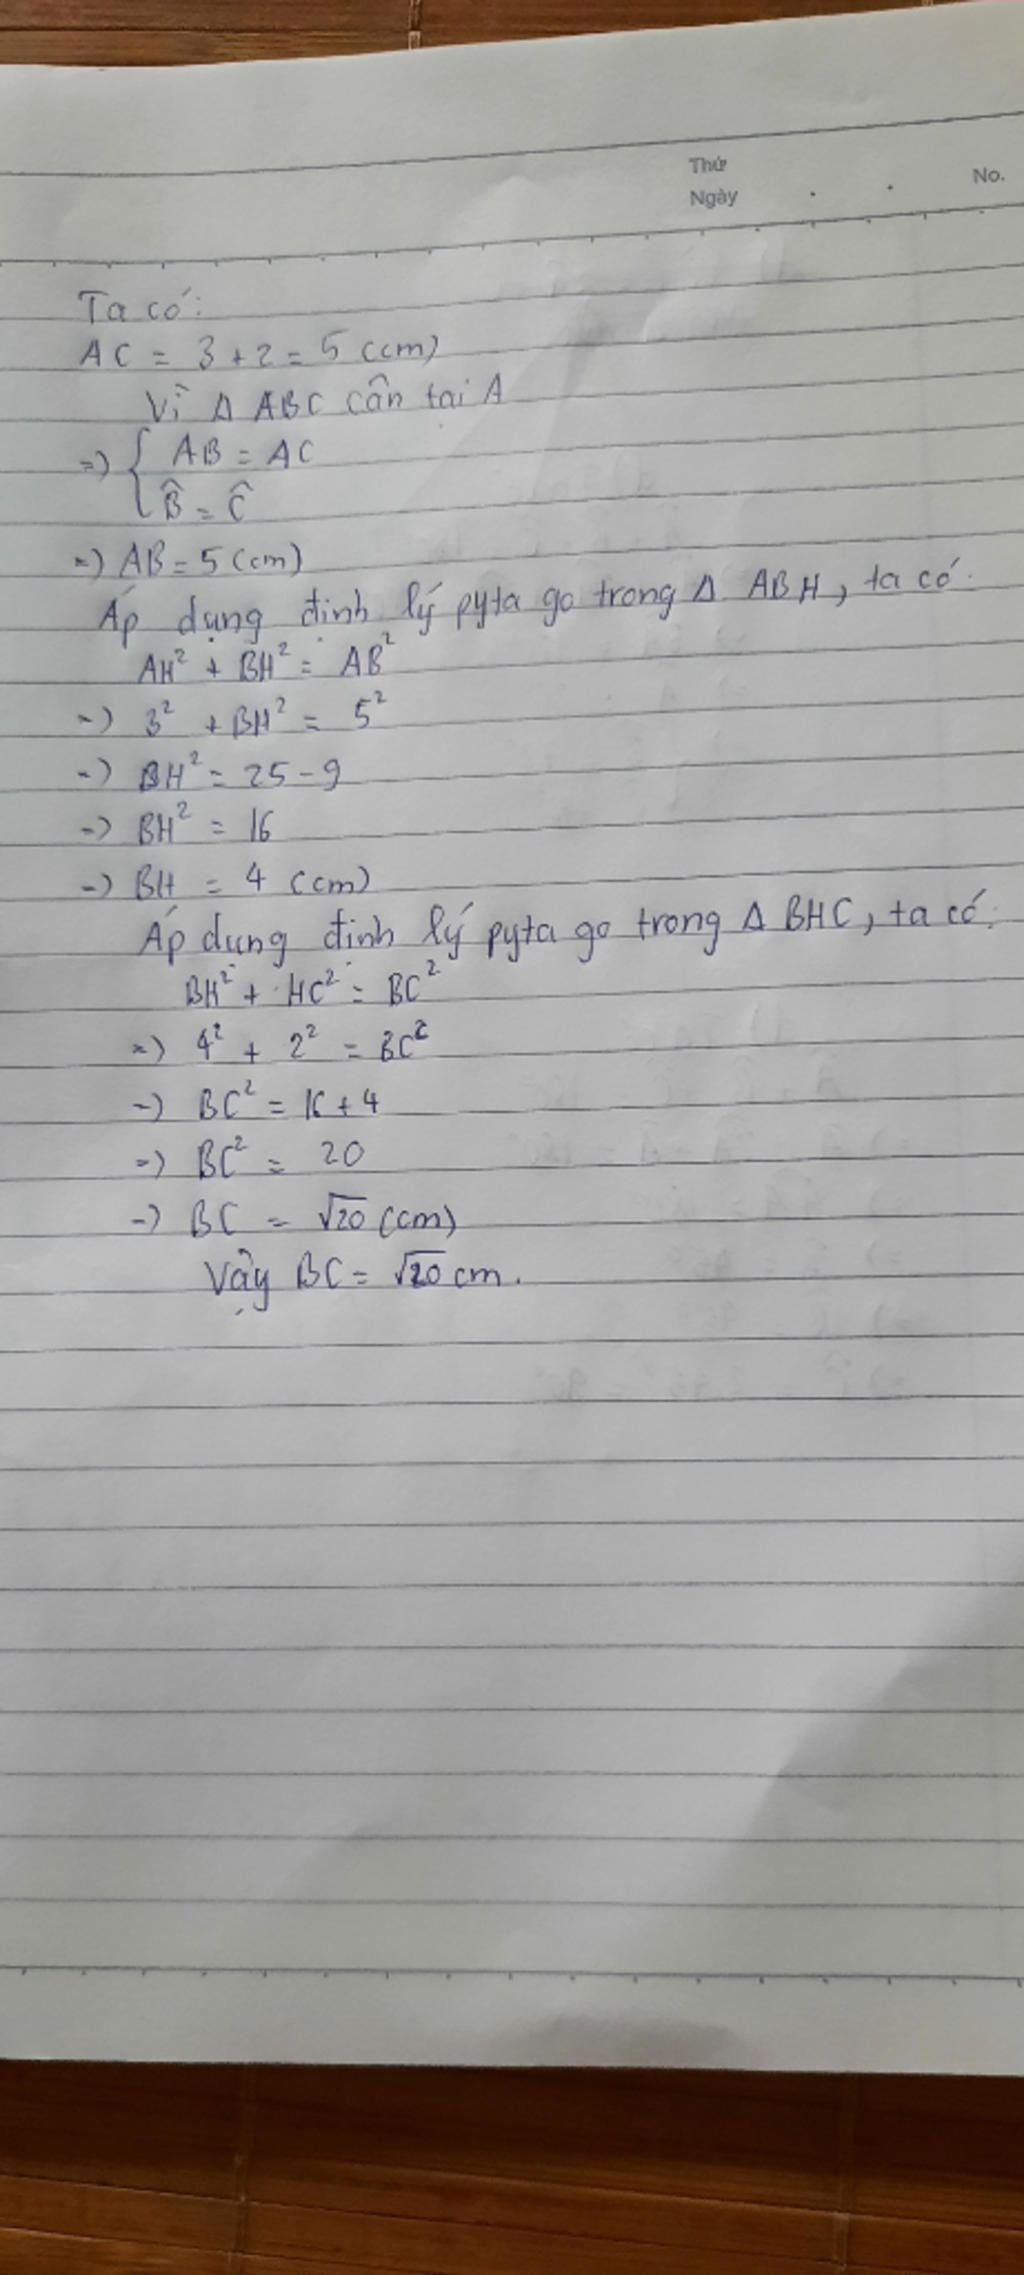 Thứ
Ngày
No.
Ta có:
AC = 3 + 2 = 5 (cm)
Vì Δ ABC cân tại A
=> { AB = AC
B̂ = Ĉ
=> AB = 5 (cm)
Áp dụng định lý pyta go trong Δ ABH, ta có:
AH² + BH² = AB²
=> 3² + BH² = 5²
=> BH² = 25 - 9
=> BH² = 16
=> BH = 4 (cm)
Áp dụng định lý pyta go trong Δ BHC, ta có:
BH² + HC² = BC²
=> 4² + 2² = BC²
=> BC² = 16 + 4
=> BC² = 20
=> BC = √20 (cm)
Vậy BC = √20 cm.